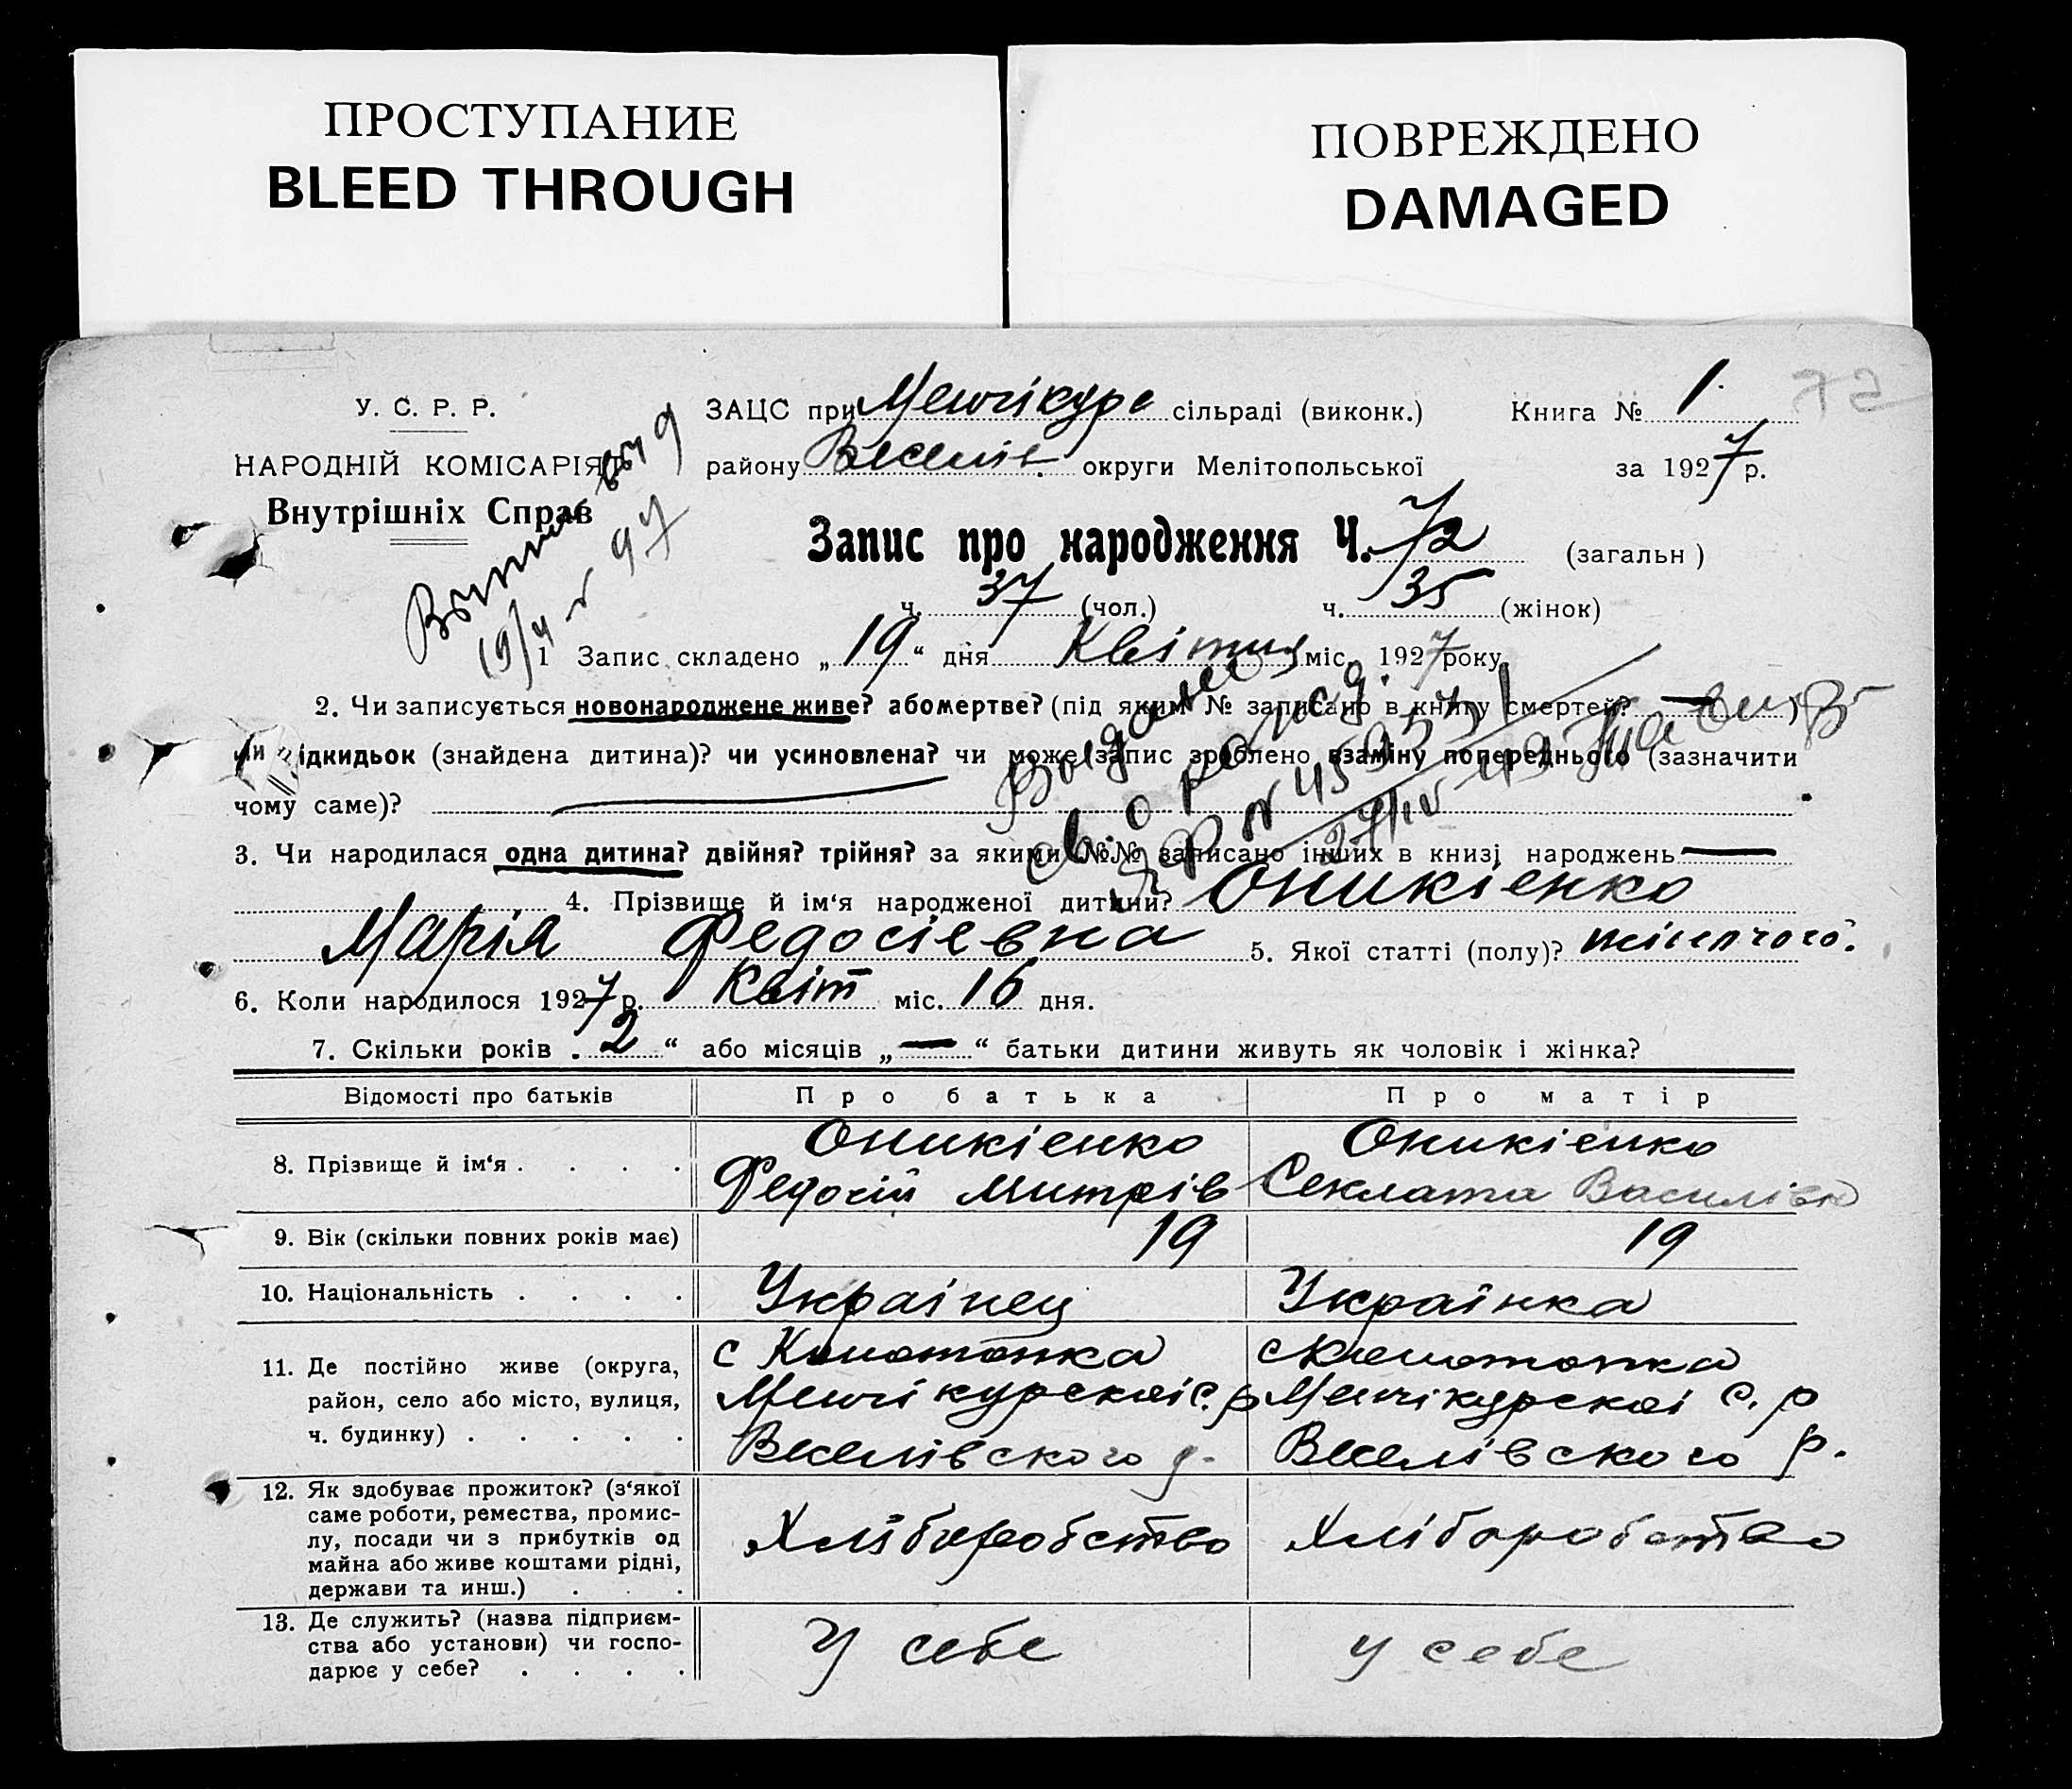 ПРОСТУПАНИЕ
BLEED THROUGH
ПОВРЕЖДЕНО
DAMAGED
У. С. Р. Р.
НАРОДНІЙ КОМІСАРІЯТ
Внутрішніх Справ
ЗАЦС при Менчікурс сільраді (виконк.)
району Веселів округи Мелітопольської
Книга № 1
72
за 1927 р.
Запис про народження Ч. 72 (загальн)
ч. 37 (чол.) ч. 35 (жінок)
19/4
1 Запис складено „19“ дня Квітня міс. 1927 року.
2. Чи записується новонароджене живе? або мертве? (під яким № записано в книгу смертей? — )
чи підкидьок (знайдена дитина)? чи усиновлена? чи може запис зроблено взаміну попереднього (зазначити
чому саме)?
Выдано
св. о рожд.
27/IV 49
3. Чи народилася одна дитина? двійня? трійня? за якими №№ записано інших в книзі народжень —
4. Прізвище й ім‘я народженої дитини? Оникіенко
Марія Федосіевна 5. Якої статті (полу)? жіночого.
6. Коли народилося 1927 р. Квіт міс. 16 дня.
7. Скільки років „2“ або місяців „—“ батьки дитини живуть як чоловік і жінка?
Відомості про батьків Про батька Про матір
8. Прізвище й ім‘я . . . . Оникіенко Федосій Митрів Оникіенко Секлата Василівн
9. Вік (скільки повних років має) 19 19
10. Національність . . . . Українец Українка
11. Де постійно живе (округа,
район, село або місто, вулиця,
ч. будинку) . . . . .
с Конотопка
Менчікурскоі с. р
Веселівского р.
с Конотопка
Менчікурскоі с. р
Веселівского р.
12. Як здобуває прожиток? (з‘якої
саме роботи, ремества, промис-
лу, посади чи з прибутків од
майна або живе коштами рідні,
держави та инш.) . . .
Хліборобство Хліборобство
13. Де служить? (назва підприєм-
ства або установи) чи госпо-
дарює у себе? . . . .
У себе у себе